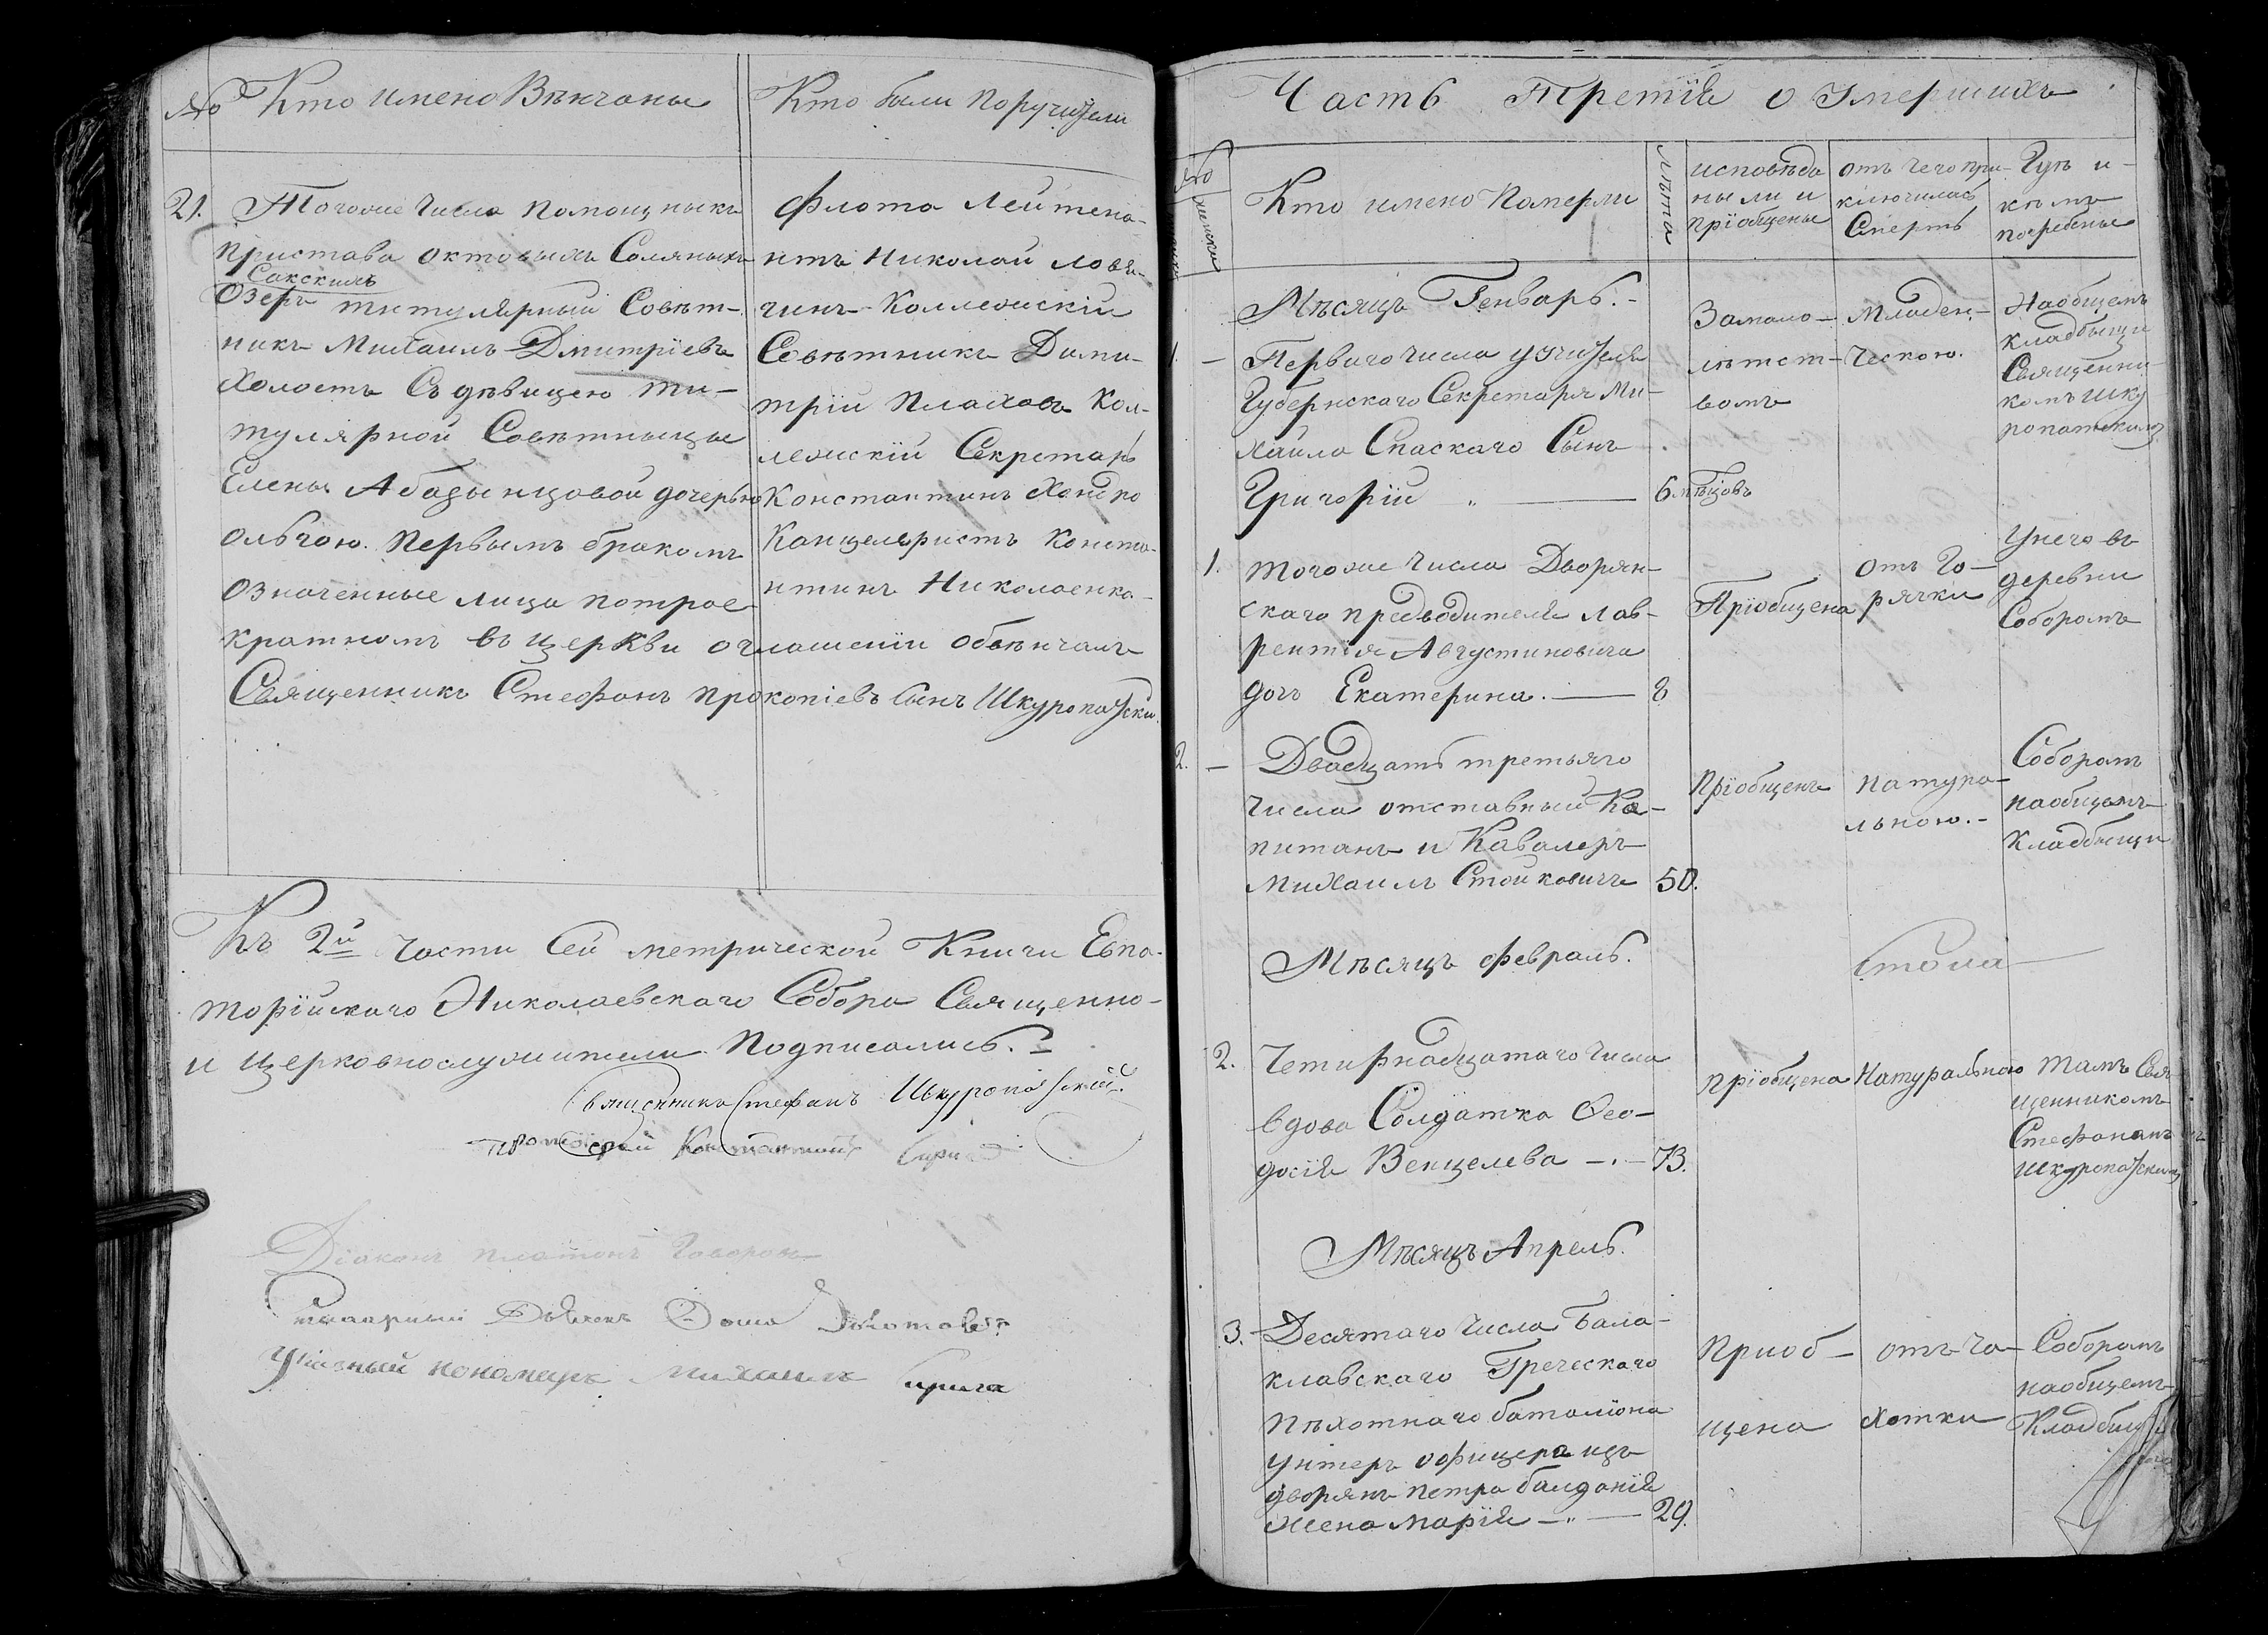 № Кто имено Вѣнчаны
Кто были поручители
21. Тогоже числа помощныкъ
пристава октовыхъ Соляныхъ
Сакскихъ
Озеръ титулярный Совѣт-
никъ Михаилъ Дмитріевъ
холостъ Съ дѣвицею ти-
тулярной Совѣтныцы
Елены Абазынцовой дочерью
Ольгою. Первымъ бракомъ
Означенные лица потрое-
Флота Лейтена-
нтъ Николай Ловя-
чинъ Коллежскій
Совѣтникъ Дими-
трій Плаховъ Кол-
лежскій Секретарь
Константинъ Хондко
Канцеляристъ Конста-
нтинъ Николаенко-
кратномъ въ церкви оглашеніи обвѣнчалъ
Священникъ Стефанъ Прокопіевъ Сынъ Шкуропатски.
Къ 2й части Сей метрической Книги Евпа-
торійскаго Николаевскаго Собора Священно-
и церковнослужители Подписались.
Священникъ Стефанъ Шкуропатскій.
Протоіерей Константинъ Спири
Діаконъ платонъ Говоров
Дьячокъ Золотаевъ
Указный пономаръ михаилъ
Часть Третія о Умершихъ
№ женски
Кто имено Померли
лѣта
исповѣда
ныли и
пріобщены
отъ чего при-
ключилась
Смерть
Гдѣ и
кѣмъ
погребены
Мѣсяцъ Генварь.
1. – Первого числа учителя
Губернскаго Секретаря Ми-
хайла Спаскаго Сынъ
Григорій – 6 мѣцовъ
Замало-
лѣтст-
вомъ
Младен-
ческою.
Наобщемъ
кладбищи
Священни-
комъ Шку
ропатскимъ
1. тогоже числа Дворян-
скаго предводителя лав-
рентія Августиновича
дочъ Екатерина. – 8
Пріобщена
отъ Го-
рячки
Унего въ
деревни
Соборомъ
2. – Двадцать третьяго
числа отставный Ка-
питанъ и Кавалеръ
Михаилъ Стойковичъ 50.
Пріобщенъ
натура-
льною.
Соборомъ
наобщемъ
Кладбищи
Мѣсяцъ февраль.
2. Четирнадцатаго числа
вдова Солдатка Ѳео-
досія Венцелева – 73.
пріобщена
Натуральною
тамъ Свя-
щенникомъ
Стефаномъ
Шкуропатскимъ
Мѣсяцъ Апрель.
3. Десятаго числа Бала-
клавскаго Греческаго
Пѣхотнаго баталіона
унтеръ офицера изъ
дворянъ петра балданія
жена марія – 29.
Приоб-
щена
отъ Ча-
хотки
Соборомъ
наобщемъ
Кладбищи